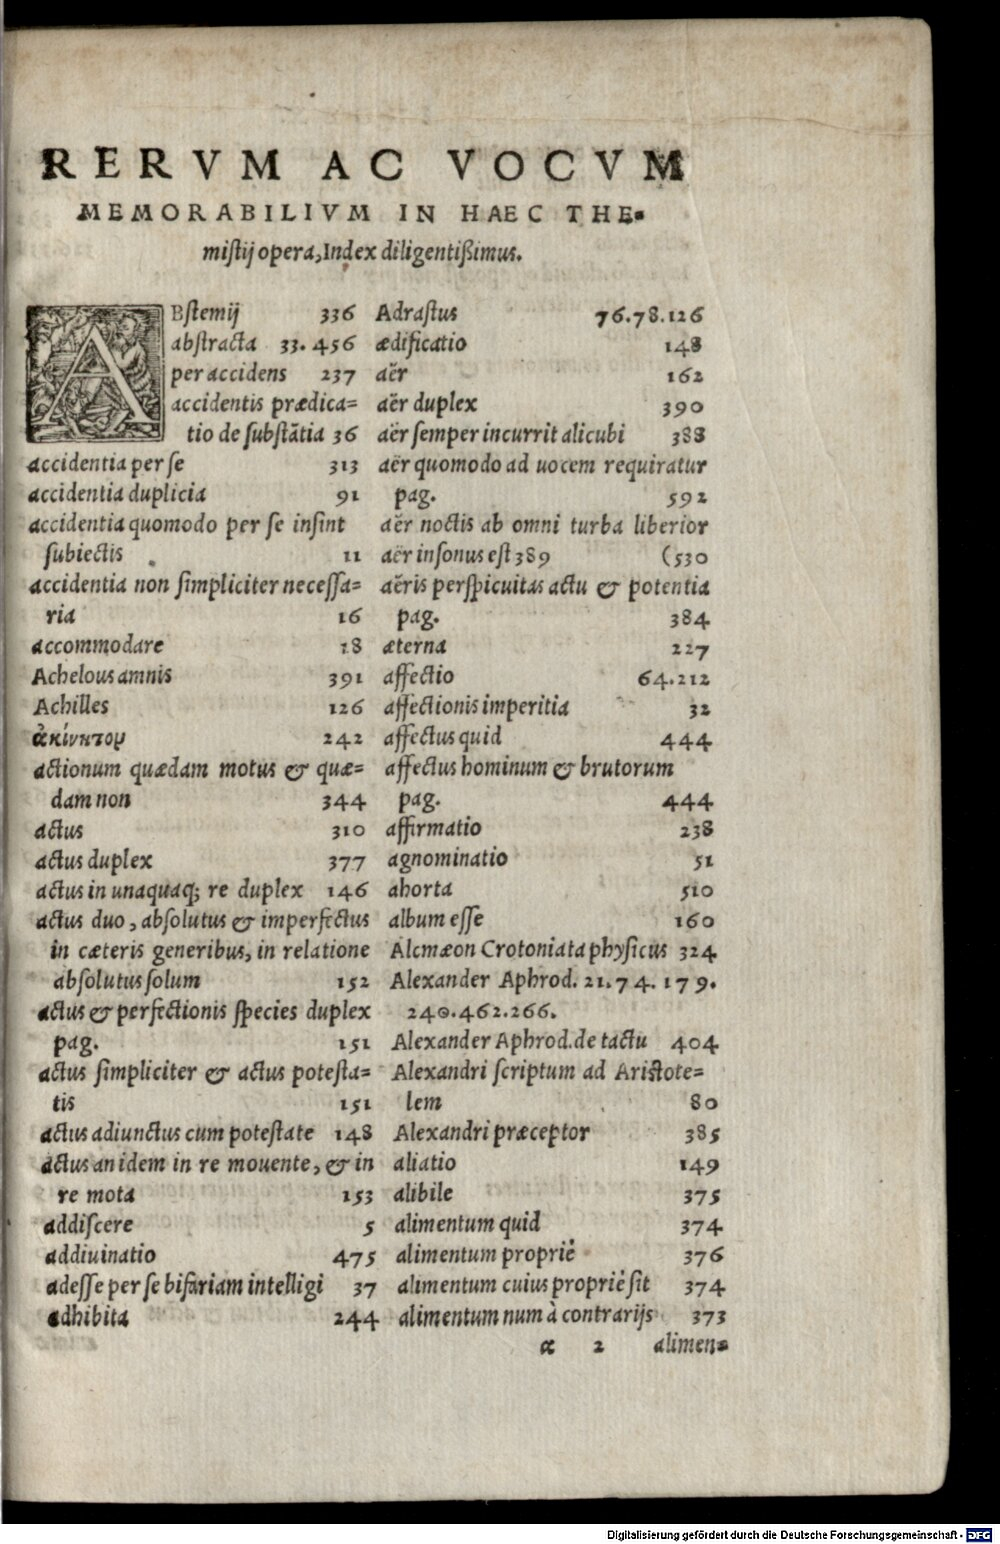 RERVM AC VOCVM
MEMORABILIVM IN HAEC THE-
mistij opera, Index diligentißimus.
ABstemij 336
abstracta 33. 456
per accidens 237
accidentis prædica=
tio de substãtia 36
accidentia per se 313
accidentia duplicia 91
accidentia quomodo per se insint
subiectis 11
accidentia non simpliciter necessa=
ria 16
accommodare 18
Achelous amnis 391
Achilles 126
ἀκίνητον 242
actionum quædam motus & quæ=
dam non 344
actus 310
actus duplex 377
actus in unaquaq; re duplex 146
actus duo, absolutus & imperfectus
in cæteris generibus, in relatione
absolutus solum 152
actus & perfectionis species duplex
pag. 151
actus simpliciter & actus potesta=
tis 151
actus adiunctus cum potestate 148
actus an idem in re mouente, & in
re mota 153
addiscere 5
addiuinatio 475
adesse per se bifariam intelligi 37
adhibita 244
Adrastus 76.78.126
ædificatio 148
aër 162
aër duplex 390
aër semper incurrit alicubi 388
aër quomodo ad uocem requiratur
pag. 592
aër noctis ab omni turba liberior
aër insonus est 389 (530
aëris perspicuitas actu & potentia
pag. 384
æterna 227
affectio 64.212
affectionis imperitia 32
affectus quid 444
affectus hominum & brutorum
pag. 444
affirmatio 238
agnominatio 51
ahorta 510
album esse 160
Alcmæon Crotoniata physicus 324
Alexander Aphrod. 21.74.179.
240.462.266.
Alexander Aphrod. de tactu 404
Alexandri scriptum ad Aristote=
lem 80
Alexandri præceptor 385
aliatio 149
alibile 375
alimentum quid 374
alimentum propriè 376
alimentum cuius propriè sit 374
alimentum num à contrarijs 373
α 2 alimen-
Digitalisierung gefördert durch die Deutsche Forschungsgemeinschaft - DFG